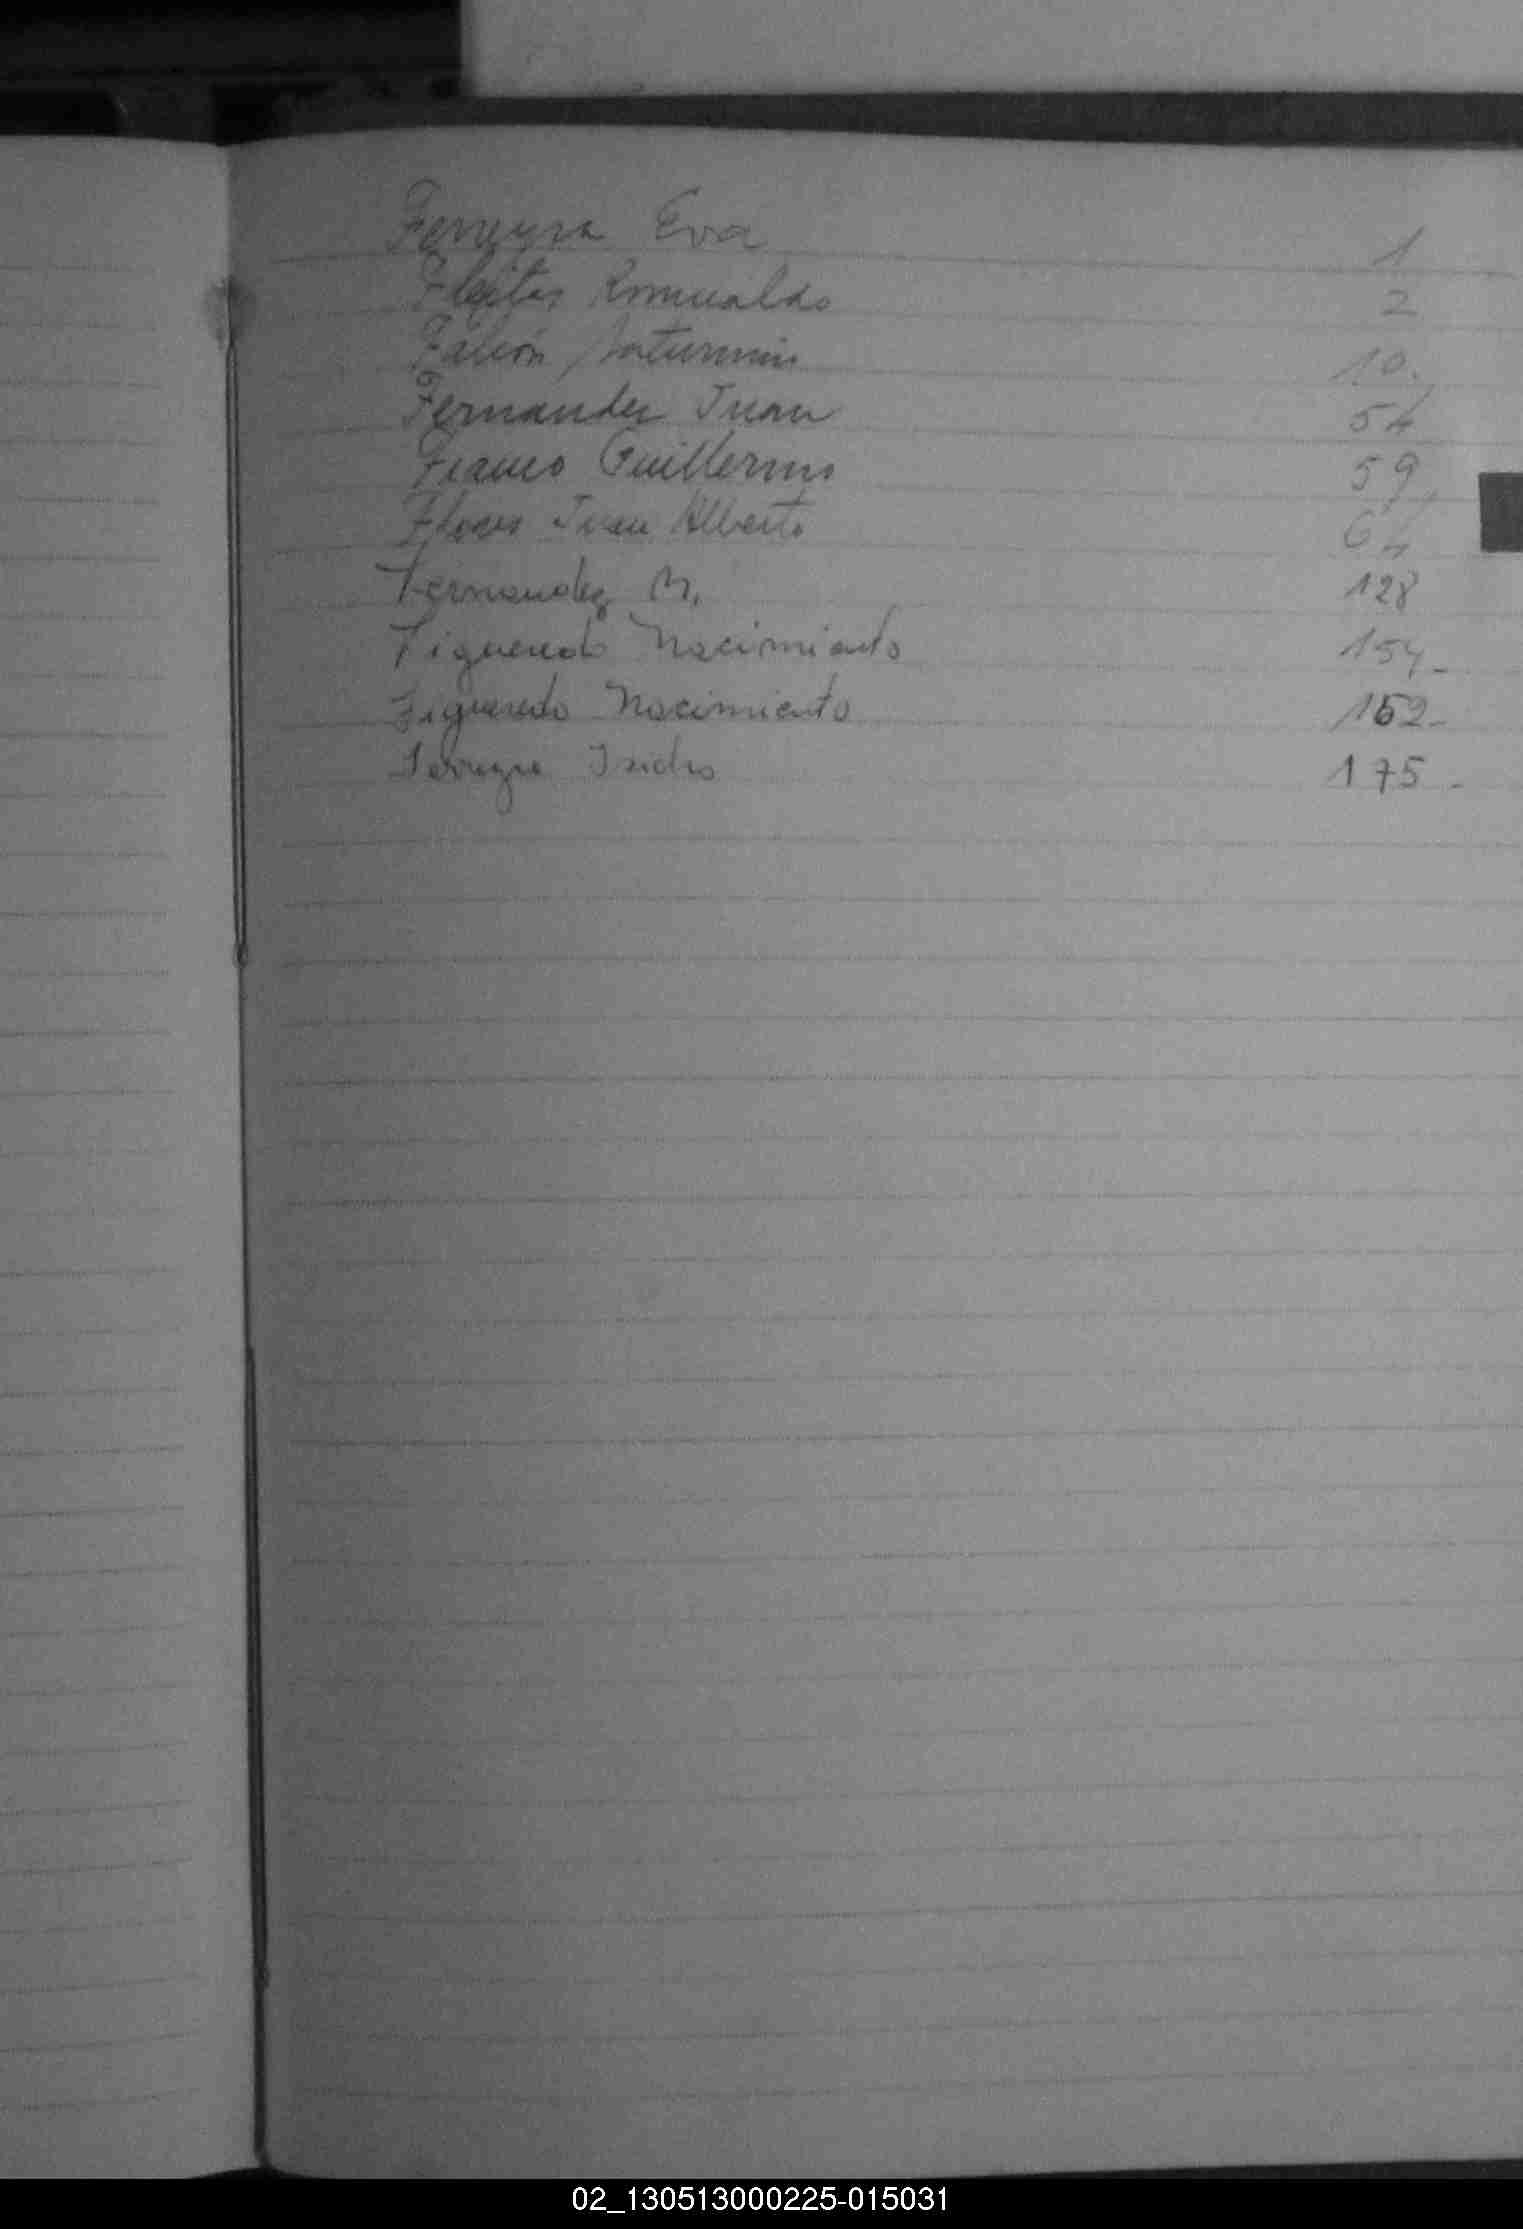 Ferreyra Eva 1
Fleitas Romualdo 2
Falcón Saturnino 10.
Fernandez Juan 54
Franco Guillermo 59,
Flores Juan Alberto 64
Fernandez M. 128
Figueredo Nacimiento 154-
Figueredo Nacimiento 162-
Ferreyra Isidro 175-
02_130513000225-015031